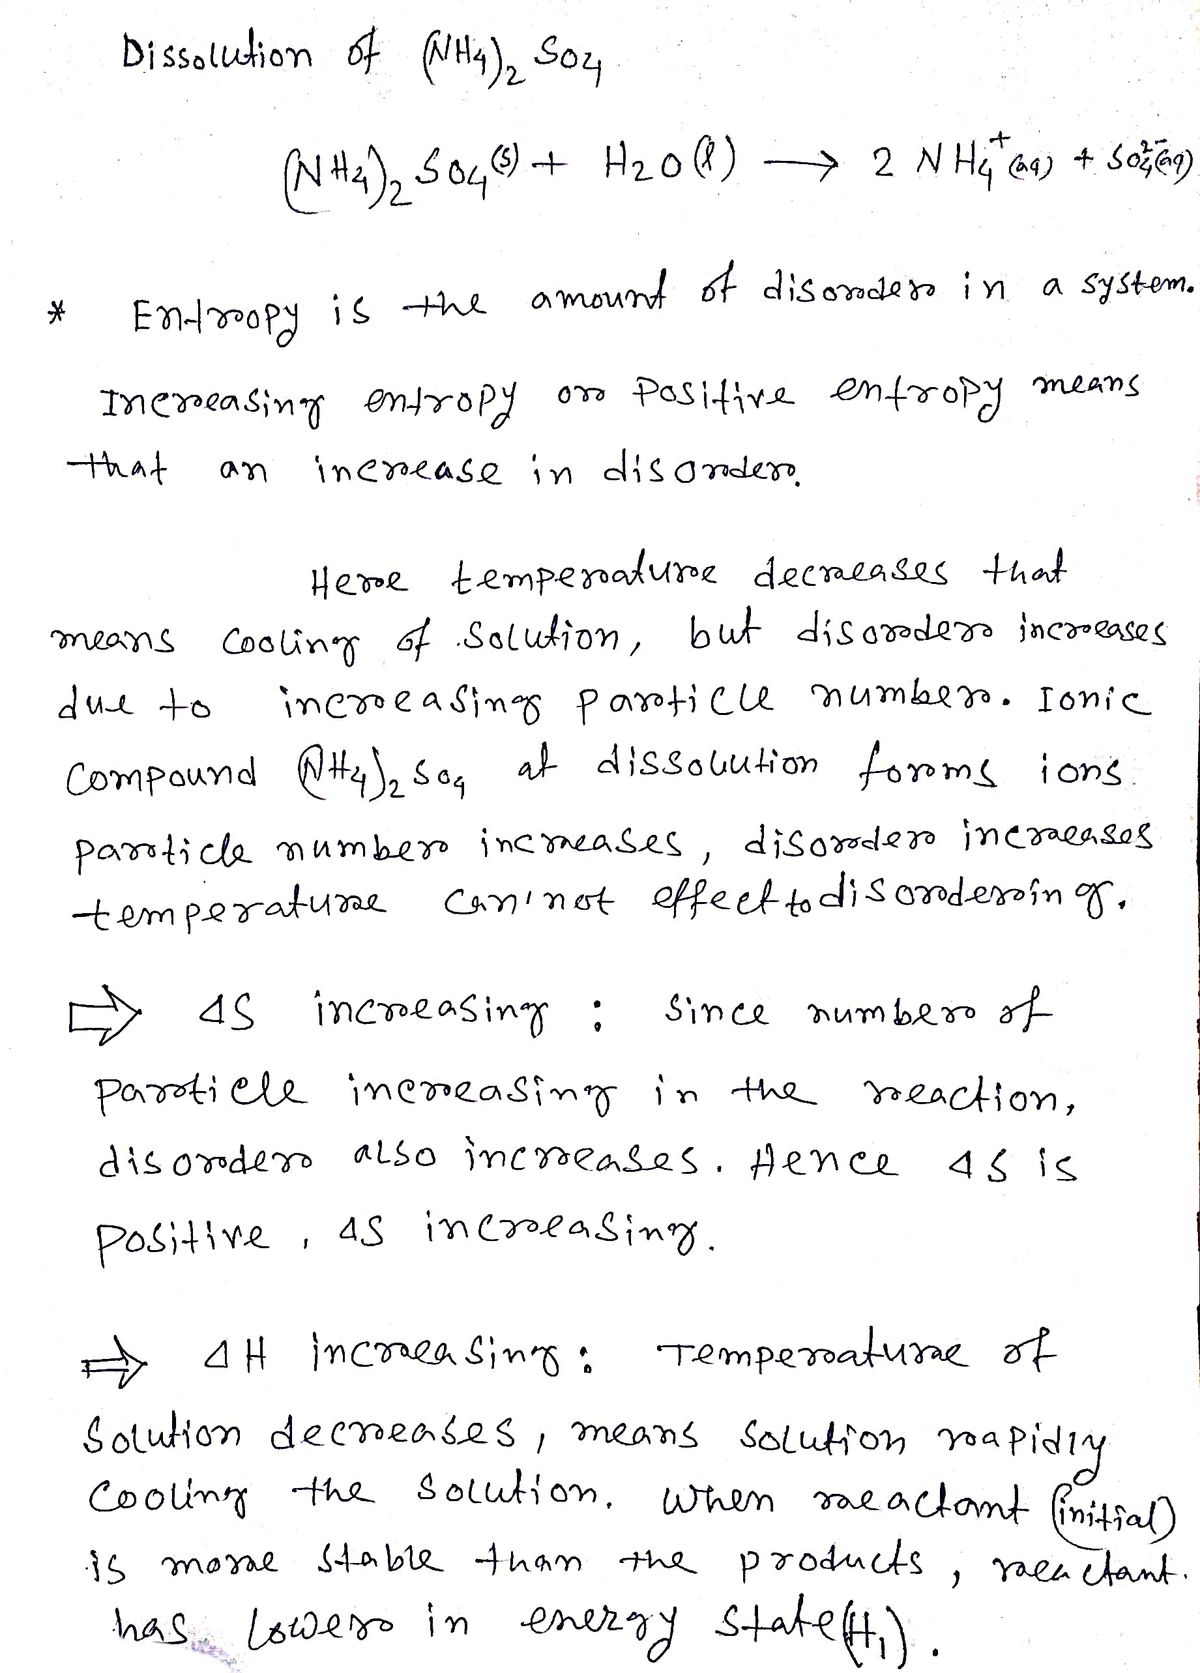 Dissolution of (NH4)2 SO4
(NH4)2 SO4(s) + H2O(l) → 2 NH4+(aq) + SO4^2-(aq)
* Entropy is the amount of disorder in a system.
Increasing entropy or Positive entropy means
that an increase in disorder.
Here temperature decreases that
means cooling of solution, but disorder increases
due to increasing particle number. Ionic
compound (NH4)2 SO4 at dissolution forms ions.
particle number increases, disorder increases
temperature can'not effect to disordering.
⇒ ΔS increasing : Since number of
particle increasing in the reaction,
disorder also increases. Hence ΔS is
positive, ΔS increasing.
⇒ ΔH increasing : Temperature of
solution decreases, means solution rapidly
cooling the solution. When reactant (initial)
is more stable than the products, reactant.
has lower in energy state (H1).